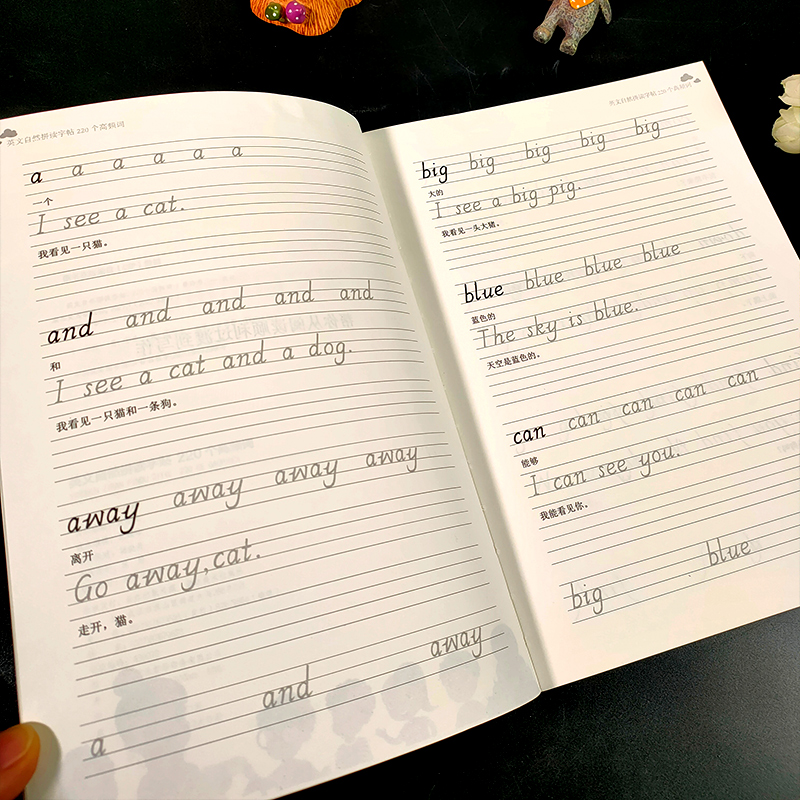 英文自然拼读字帖 220 个高频词
a a a a a a
一个
I see a cat.
我看见一只猫。
and and and and and
和
I see a cat and a dog.
我看见一只猫和一条狗。
away away away away
离开
Go away, cat.
走开，猫。
a and away
英文自然拼读字帖 220 个高频词
big big big big big
大的
I see a big pig.
我看见一头大猪。
blue blue blue blue
蓝色的
The sky is blue.
天空是蓝色的。
can can can can can
能够
I can see you.
我能看见你。
big blue